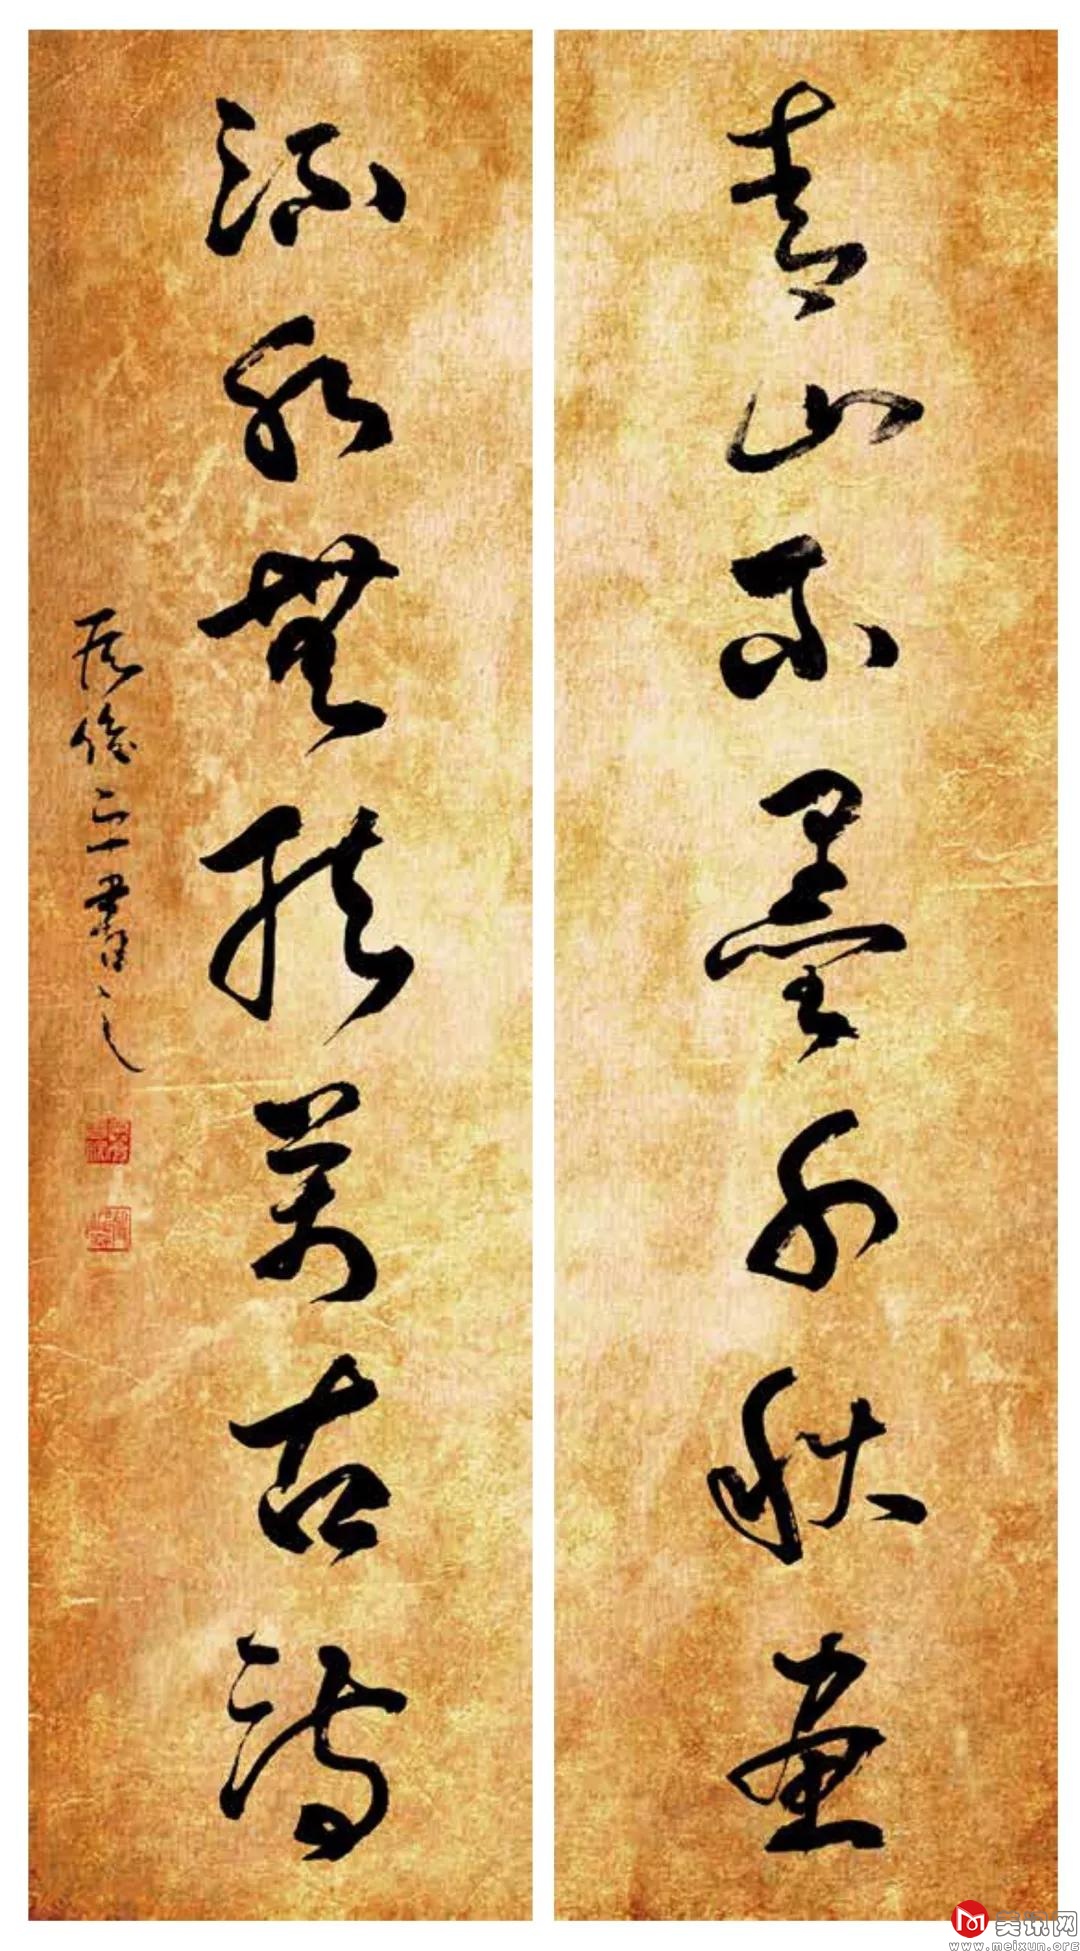 青山不墨千秋画
流水无弦万古诗
书之
美讯网
www.meixun.org